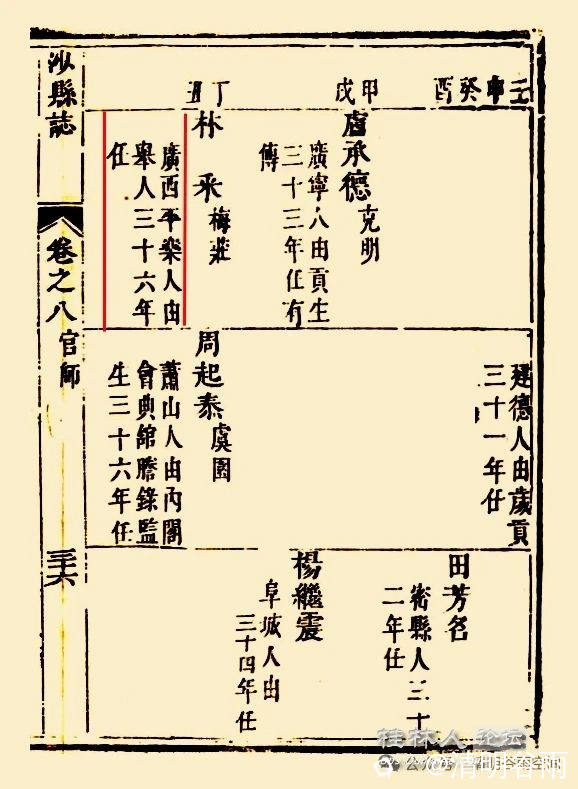 沙縣誌
卷之八
官師
三十六
壬申癸酉
甲戌
丁丑
盧承德 克明
廣寧人由貢生
三十三年任有
傳
林采 梅莊
廣西平樂人由
舉人三十六年
任
建德人由歲貢
三十一年任
周起泰 虞園
蕭山人由內閣
會典館謄錄監
生三十六年任
田芳名
縣人三十
二年任
楊繼震
阜城人由
三十四年任
桂林人 论坛
公众号
@清明谷雨